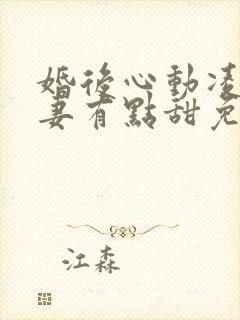 婚後心動凌
妻有點甜免
江森